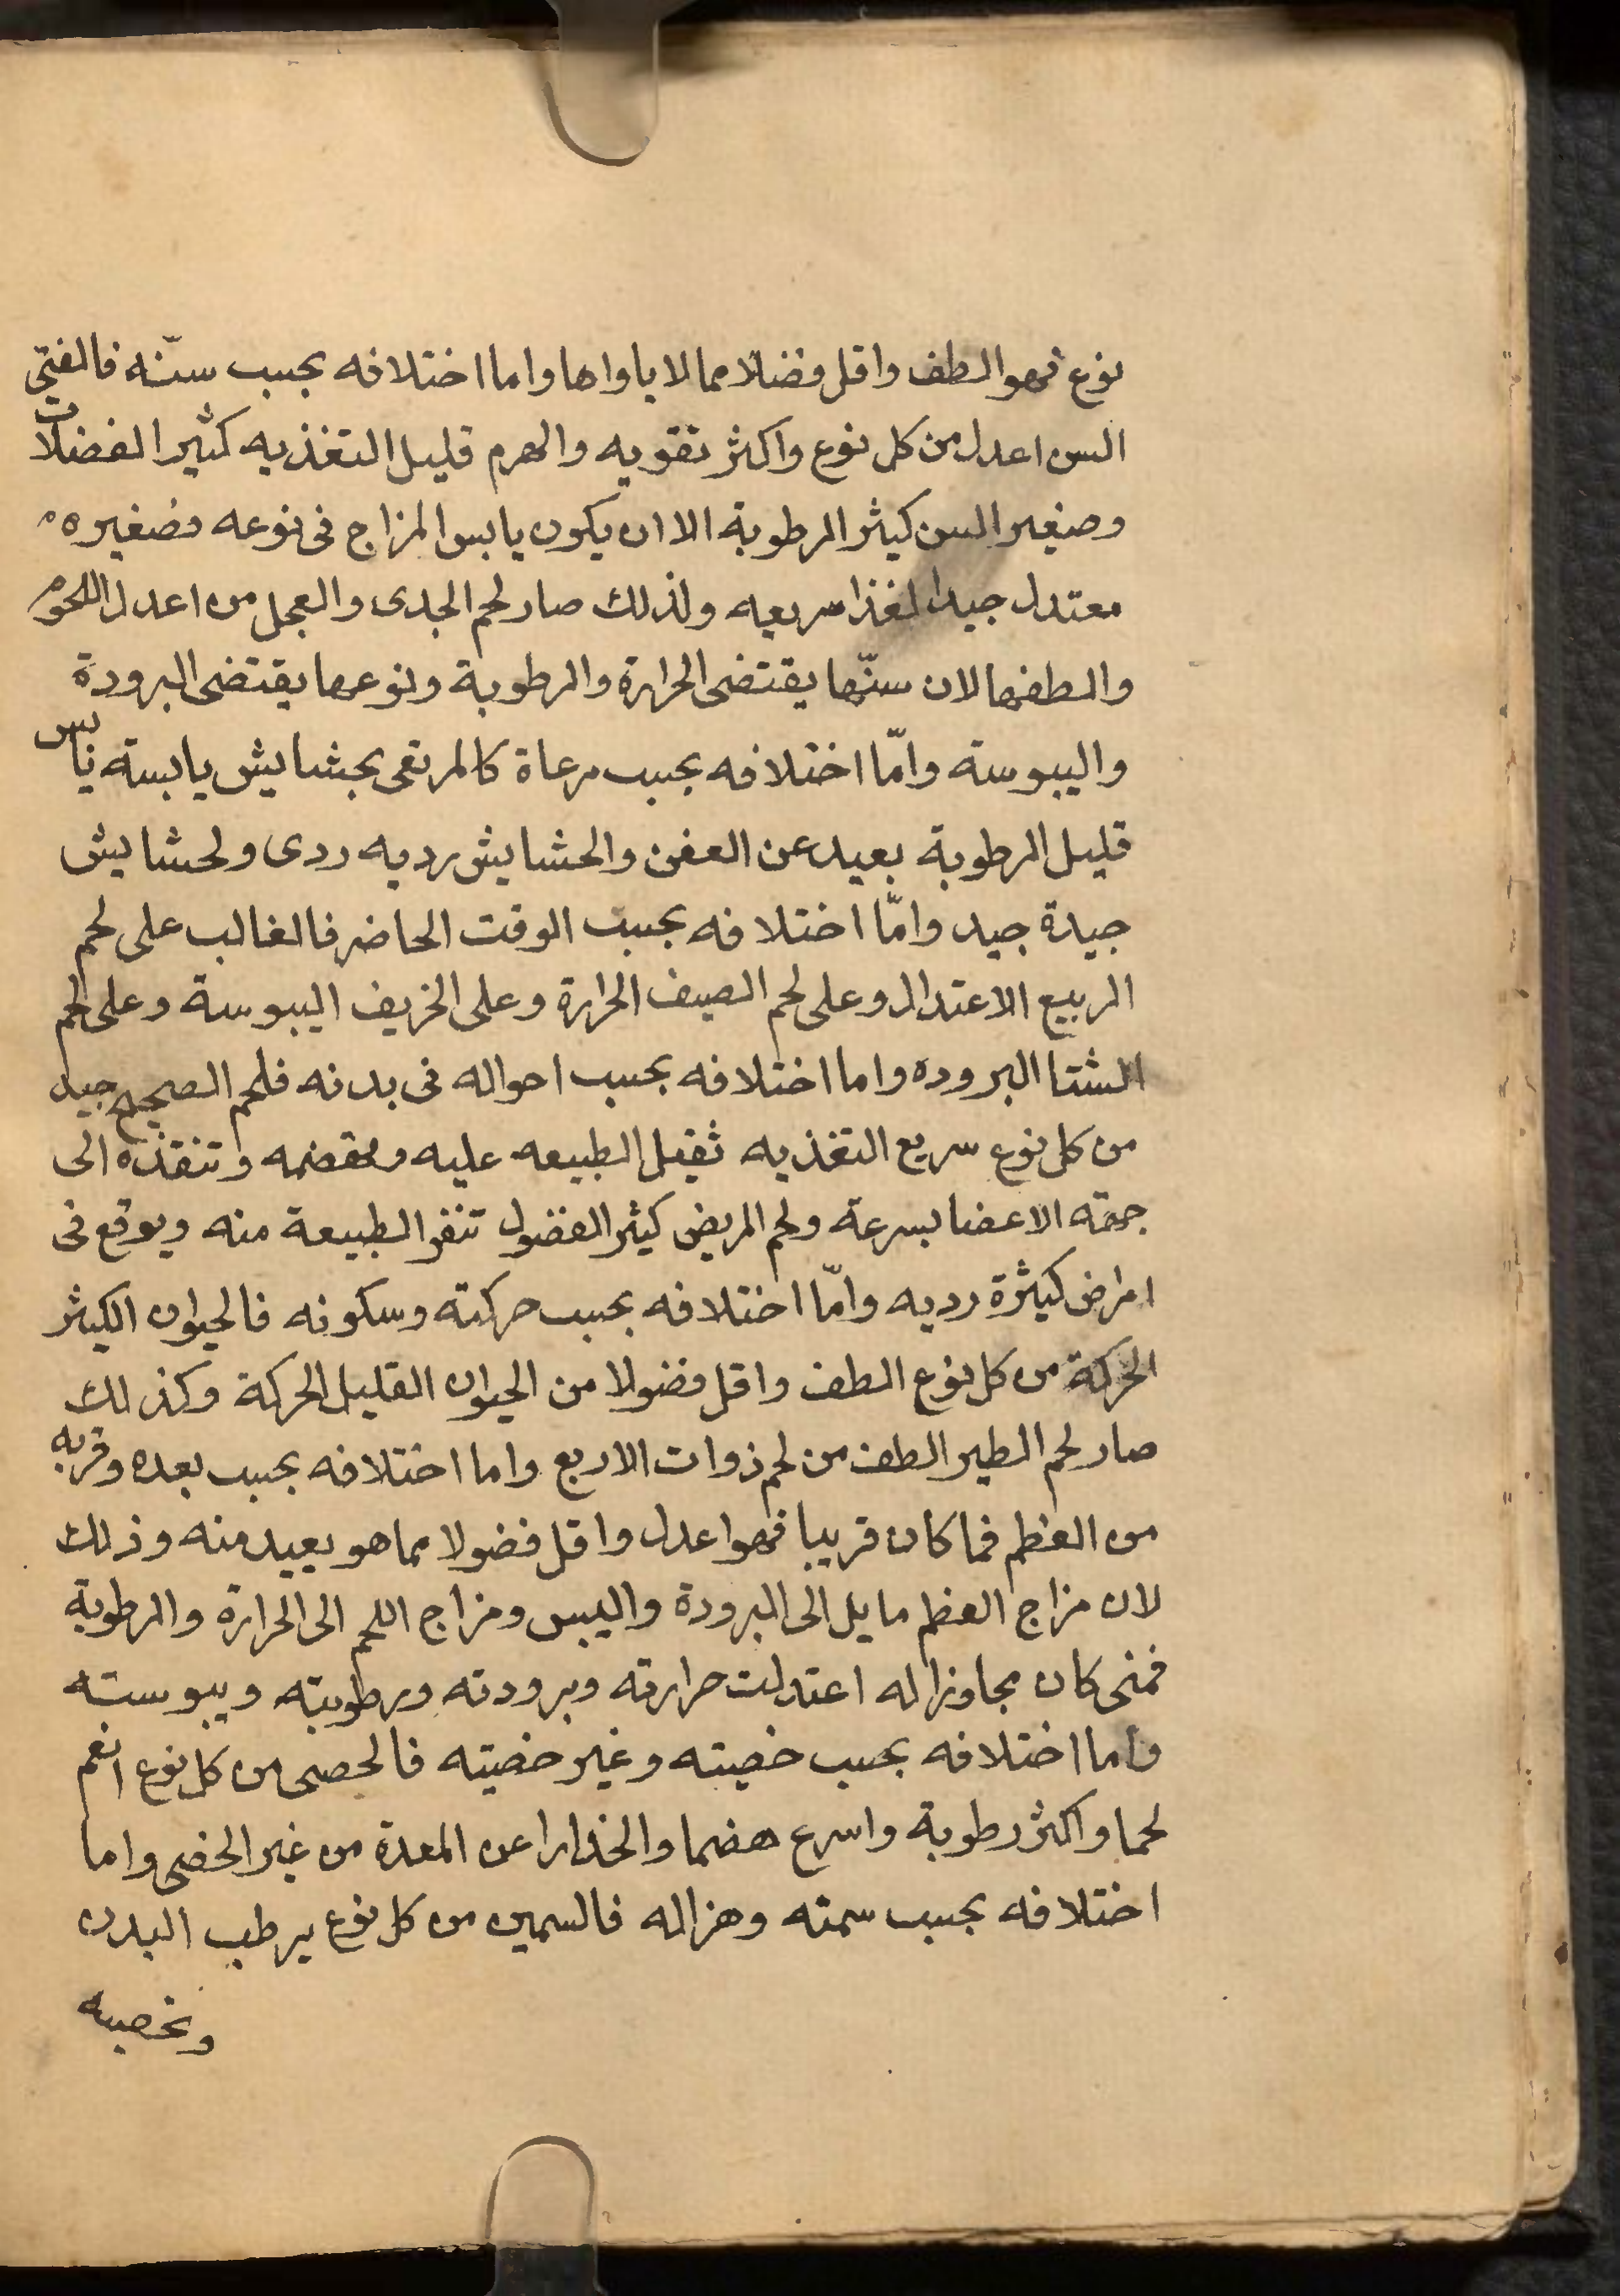 نوع فهو الطف واقل فضلا مما لا ياواها واما اختلافه بحسب سنّه فالفتى
السن اعدل من كل نوع واكثر تقويه والهرم قليل التغذيه كثير الفضلات
وصغير السن كثير الرطوبة الا ان يكون يابس المزاج فى نوعه فصغيره
معتدل جيد الغذا سريعه ولذلك صار لحم الجدى والعجل من اعدل اللحوم
والطفها لان سنّها يقتضى الحرارة والرطوبة ونوعها يقتضى البرودة
واليبوسة وامّا اختلافه بحسب مرعاة كالمرتعى بحشايش يابسة يابس
قليل الرطوبة بعيد عن العفن والحشايش رديه ردى ولحشايش
جيدة جيد وامّا اختلافه بحسب الوقت الحاضر فالغالب على لحم
الربيع الاعتدال وعلى لحم الصيف الحرارة وعلى الخريف اليبوسة وعلى لحم
الشتا البروده واما اختلافه بحسب احواله فى بدنه فلحم الصحيح جيد
من كل نوع سريع التغذيه ثقبل الطبيعه عليه وتهضمه وتنفذه الى
جهة الاعضا بسرعة ولحم المريض كثير الفضول تنفر الطبيعة منه ويوقع فى
امراض كثيرة رديه وامّا اختلافه بحسب حركته وسكونه فالحيوان الكثير
الحركة من كل نوع الطف واقل فضولا من الحيوان القليل الحركة وكذلك
صار لحم الطير الطف من لحم ذوات الاربع واما اختلافه بحسب بعده وقربه
من العظم فما كان قريبا فهو اعدل واقل فضولا مما هو بعيد منه وذلك
لان مزاج العظم مايل الى البرودة واليبس ومزاج اللحم الى الحرارة والرطوبة
فمتى كان مجاوزا له اعتدلت حرارته وبرودته ورطوبته ويبوسته
واما اختلافه بحسب خصيته وغير خصيته فالخصى من كل نوع انعم
لحما واكثر رطوبة واسرع هضما وانحدارا عن المعدة من غير الخصى واما
اختلافه بحسب سمنه وهزاله فالسمين من كل نوع يرطب البدن
وتخصبه